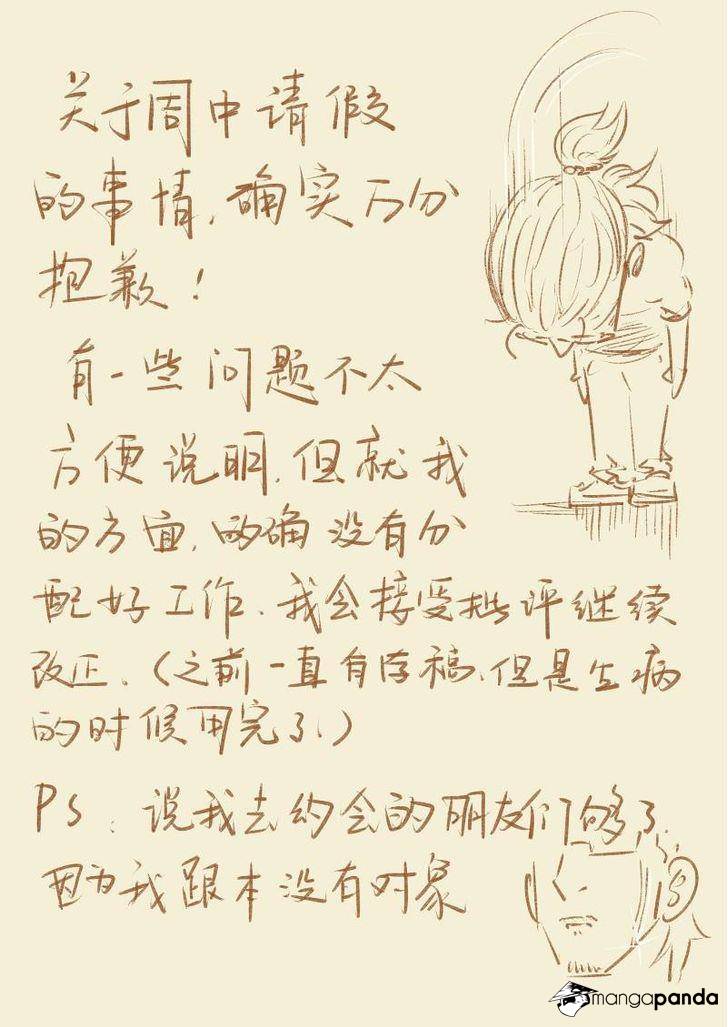 关于周中请假
的事情，确实万分
抱歉！
有一些问题不太
方便说明，但就我
的方面，的确没有分
配好工作、我会接受批评继续
改正、（之前一直有存稿、但是生病
的时候用完了、）
PS：说我去约会的朋友们够了
因为我跟本没有对象
mangapanda